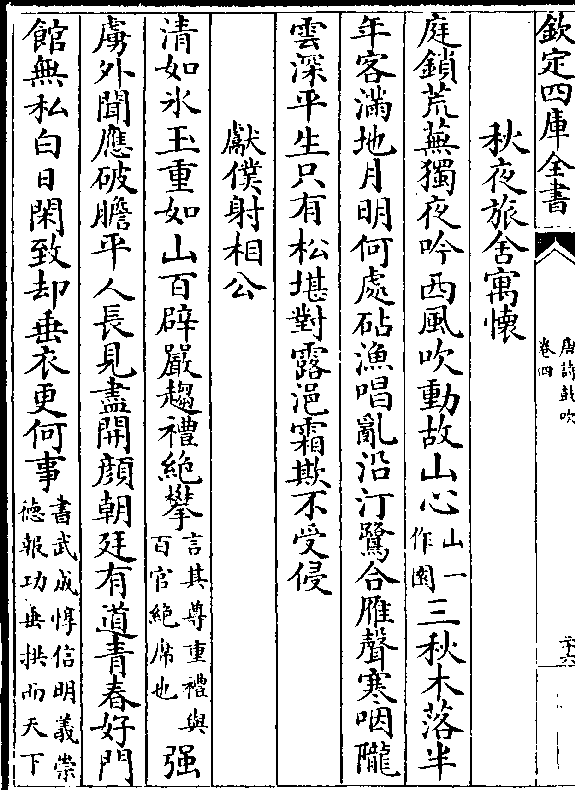 欽定四庫全書
唐詩鼓吹
卷四
二十六
秋夜旅舍寓懷
庭鎖荒蕪獨夜吟西風吹動故山心山一作園三秋木落半
年客滿地月明何處砧漁唱亂沿汀鷺合雁聲寒咽隴
雲深平生只有松堪對露浥霜欺不受侵
獻僕射相公
清如氷玉重如山百辟嚴趨禮絶攀言其尊重禮與百官絶席也强
虜外聞應破膽平人長見盡開顔朝廷有道青春好門
館無私白日閑致却垂衣更何事書武成惇信明義崇德報功垂拱而天下